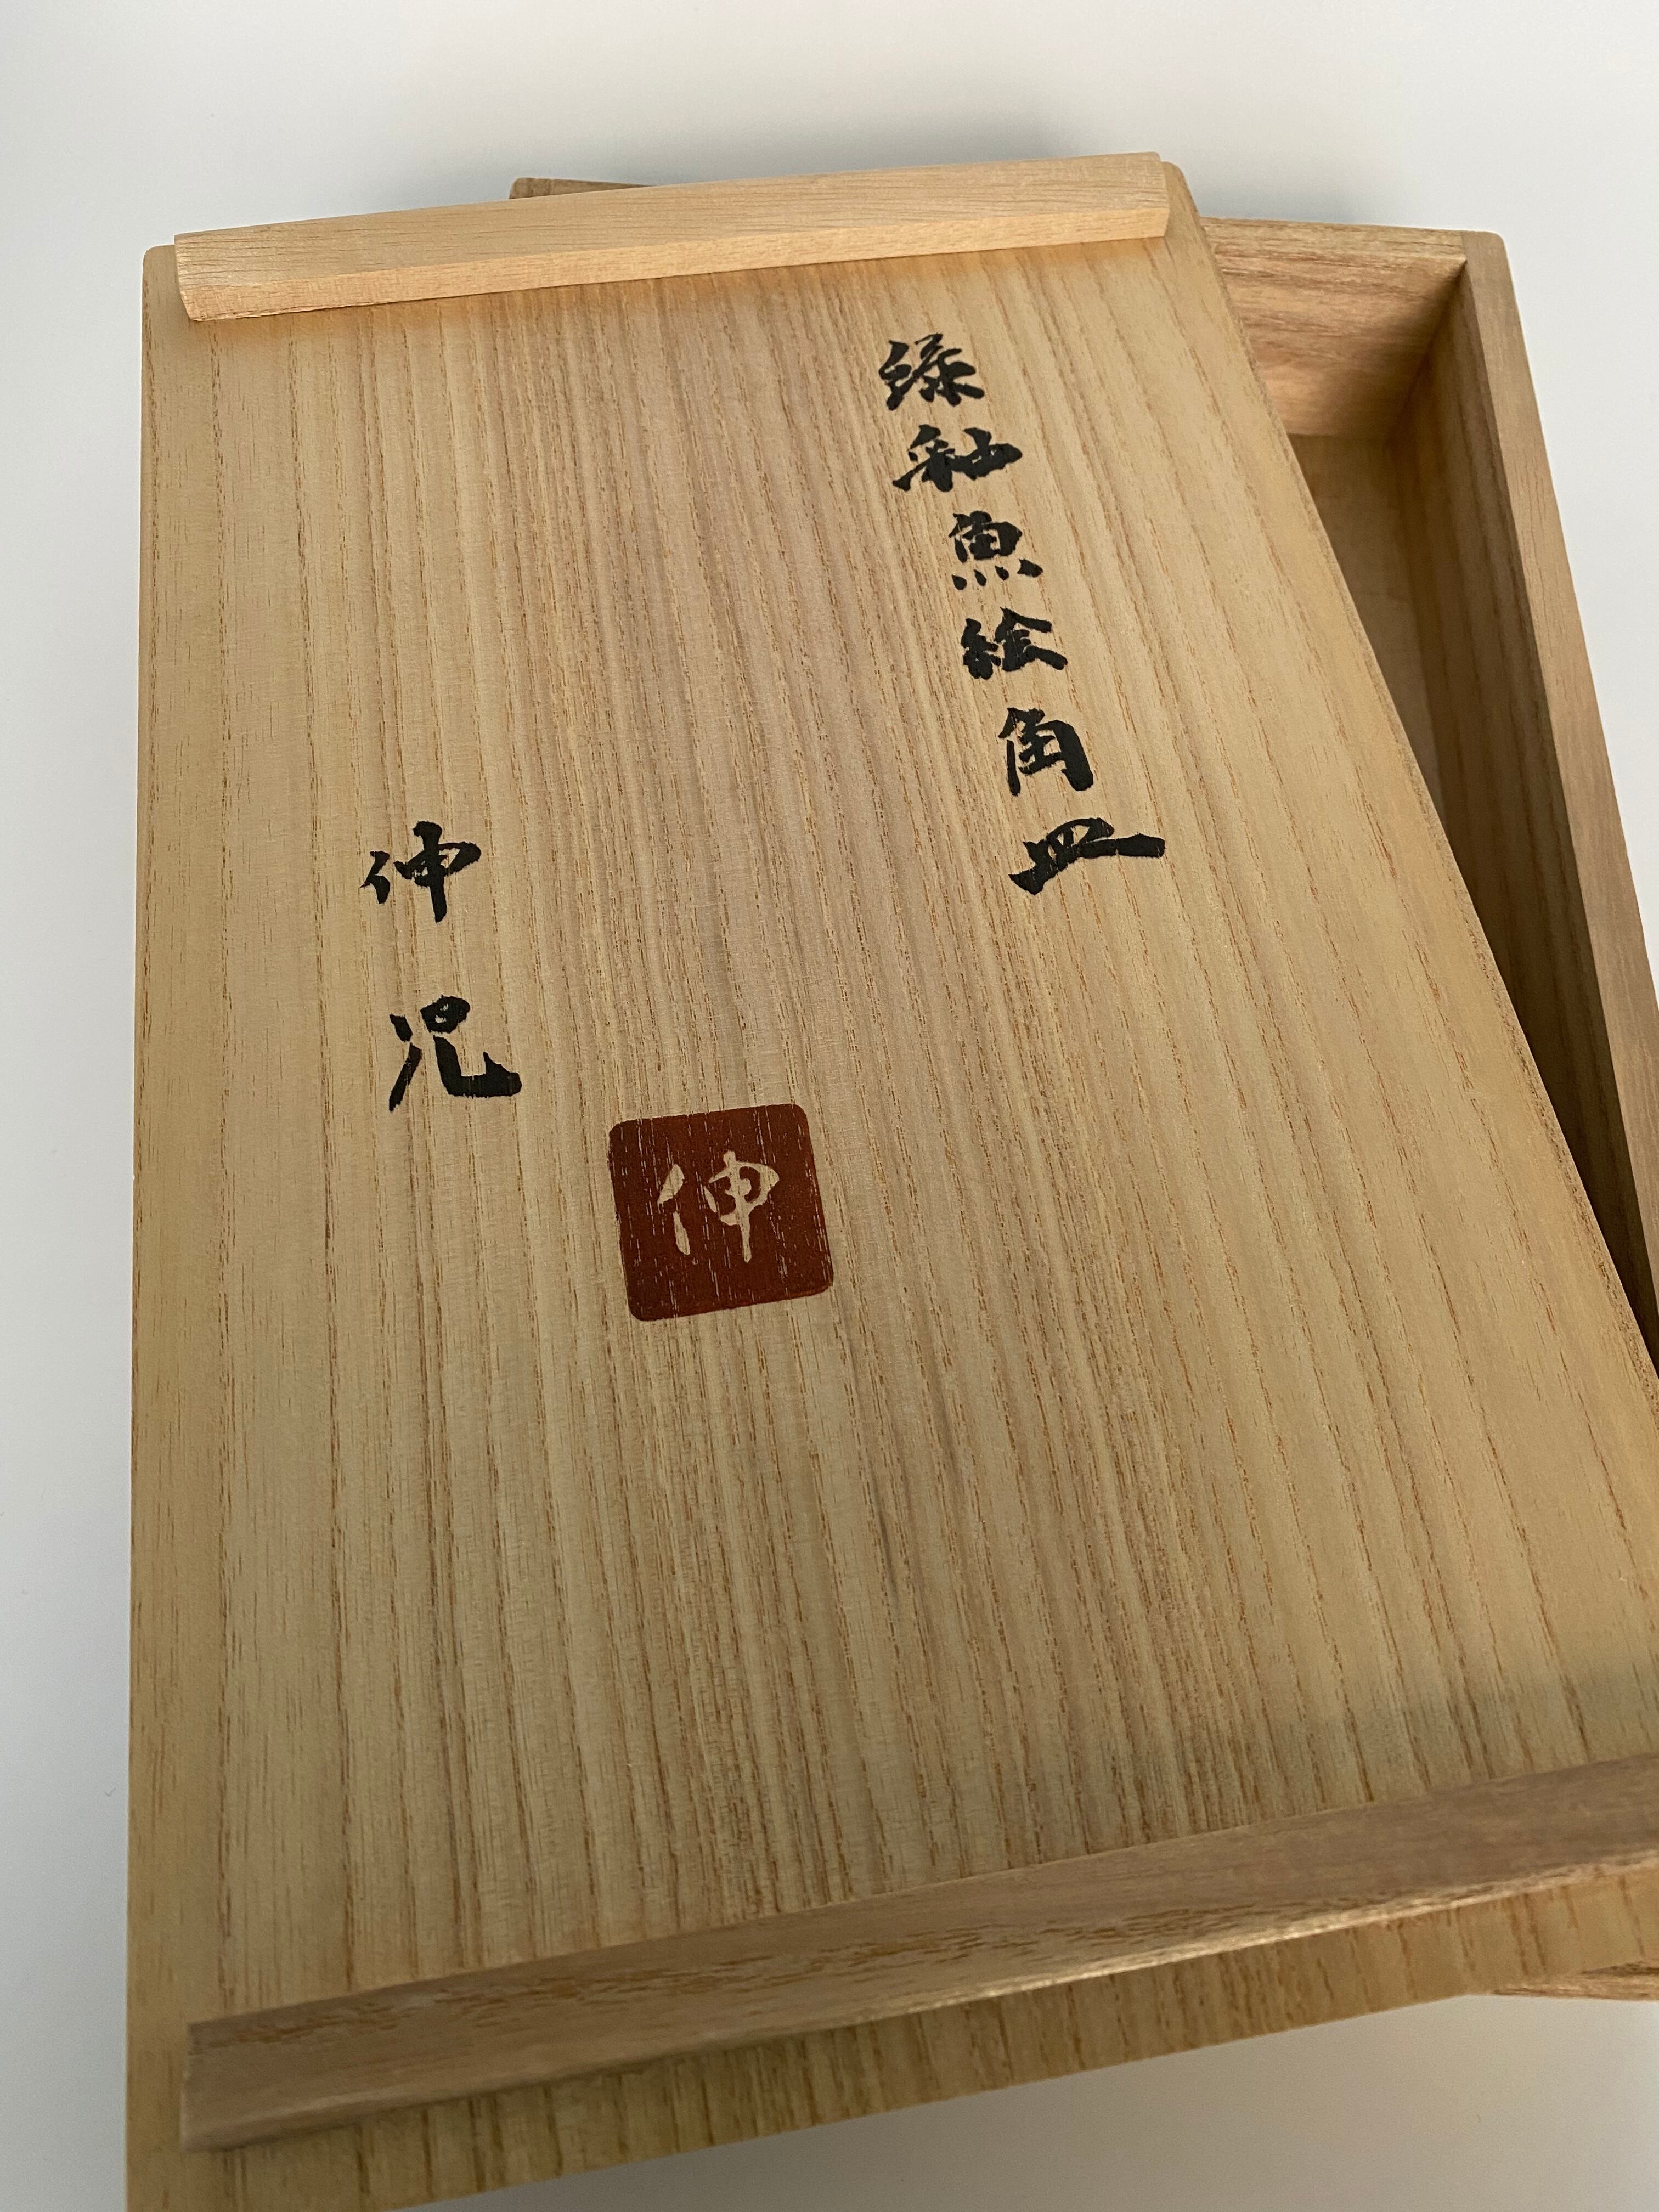 緑釉魚絵角皿
伸児
伸